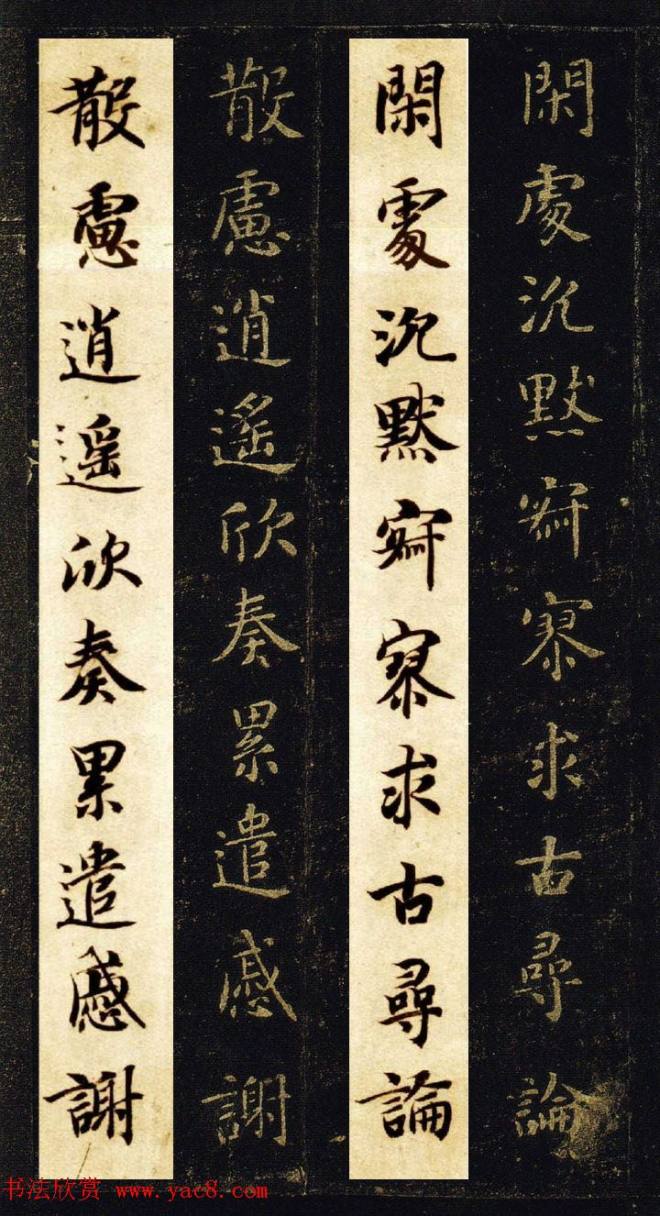 閑處沉默寂寥求古尋論
閑處沉默寂寥求古尋論
散慮逍遙欣奏累遣慼謝
散慮逍遙欣奏累遣慼謝
书法欣赏 www.yac8.com